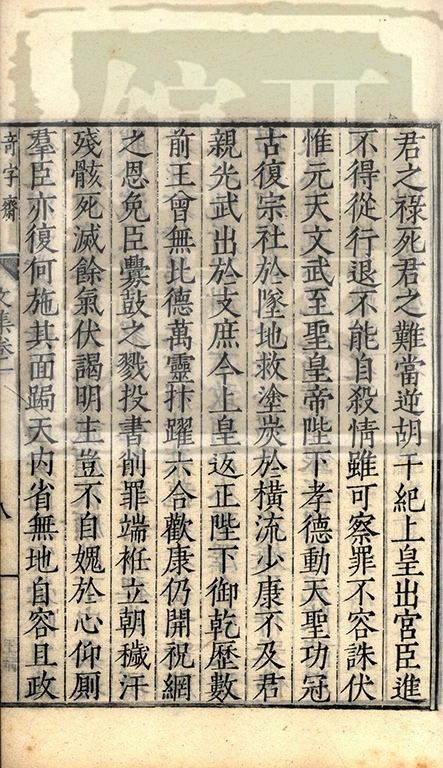 君之祿死君之難當逆胡干紀上皇出宮臣進
不得從行退不能自殺情雖可察罪不容誅伏
惟元天文武至聖皇帝陛下孝德動天聖功冠
古復宗社於墜地救塗炭於橫流少康不及君
親光武出於支庶今上皇返正陛下御乾歷數
前王曾無比德萬靈抃躍六合歡康仍開祝網
之恩免臣釁鼓之戮投書削罪端衽立朝穢汗
殘骸死滅餘氣伏謁明主豈不自媿於心仰厠
羣臣亦復何施其面跼天內省無地自容且政
奇字齋
文集卷一
八